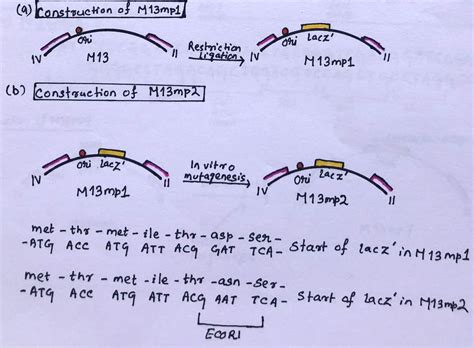 (a) Construction of M13mp1
Ori
IV
II
M13
Restriction
ligation
Ori
lacz'
IV
II
M13mp1
(b) Construction of M13mp2
Ori
lacz'
IV
II
M13mp1
In vitro
mutagenesis
Ori
lacz'
IV
II
M13mp2
met - thr - met - ile - thr - asp - ser -
-ATG ACC ATG ATT ACG GAT TCA - Start of lacz' in M13mp1
met - thr - met - ile - thr - asn - ser -
-ATG ACC ATG ATT ACG AAT TCA - Start of lacz' in M13mp2
ECORI